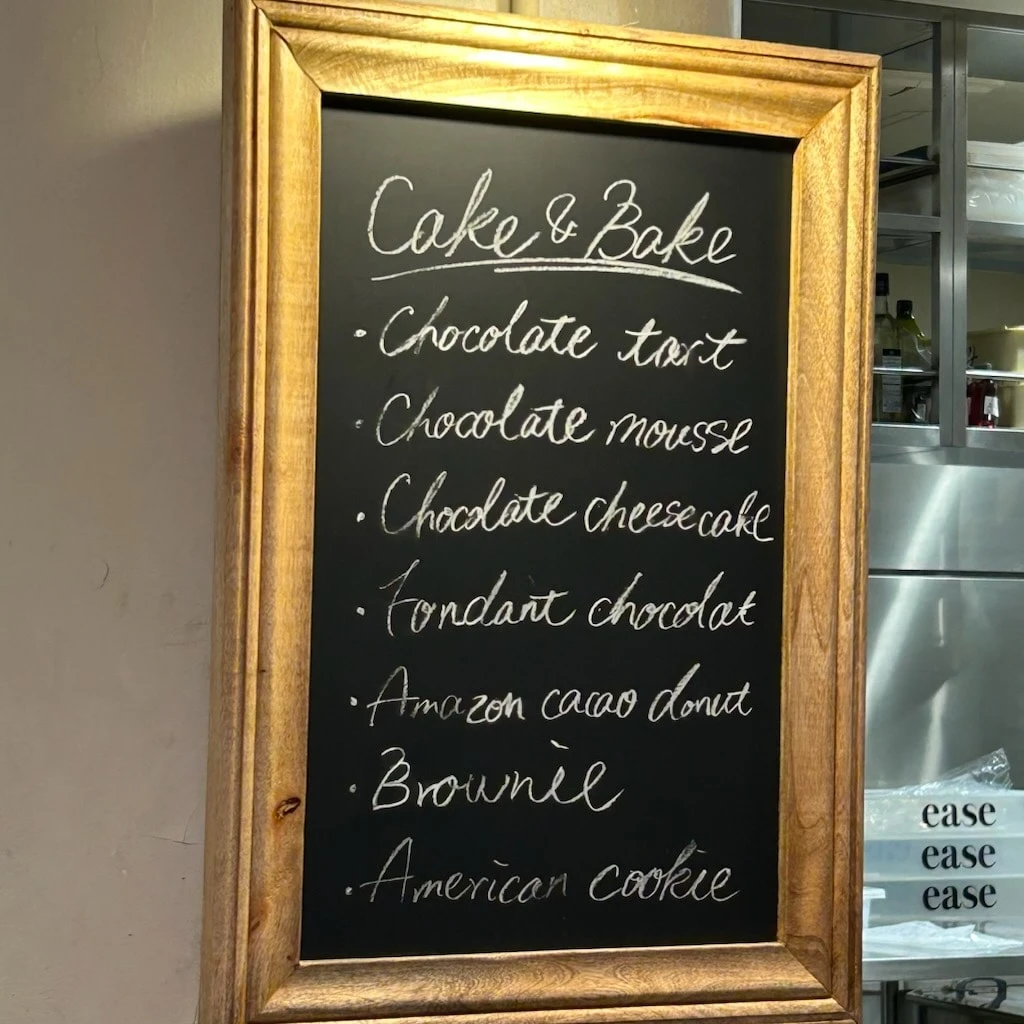 Cake & Bake
· Chocolate tart
· Chocolate mousse
· Chocolate cheesecake
· Fondant chocolat
· Amazon cacao donut
· Brownie
· American cookie
ease
ease
ease